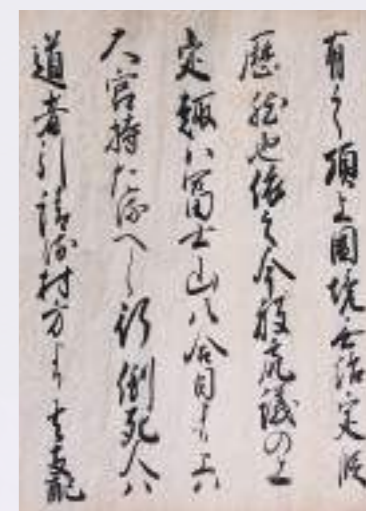 有之頂上国境定段
歴然也依之今般衆議の上
定趣ハ富士山八合目より上ハ
大宮持たるへし行倒死人ハ
道者引請村方より支配